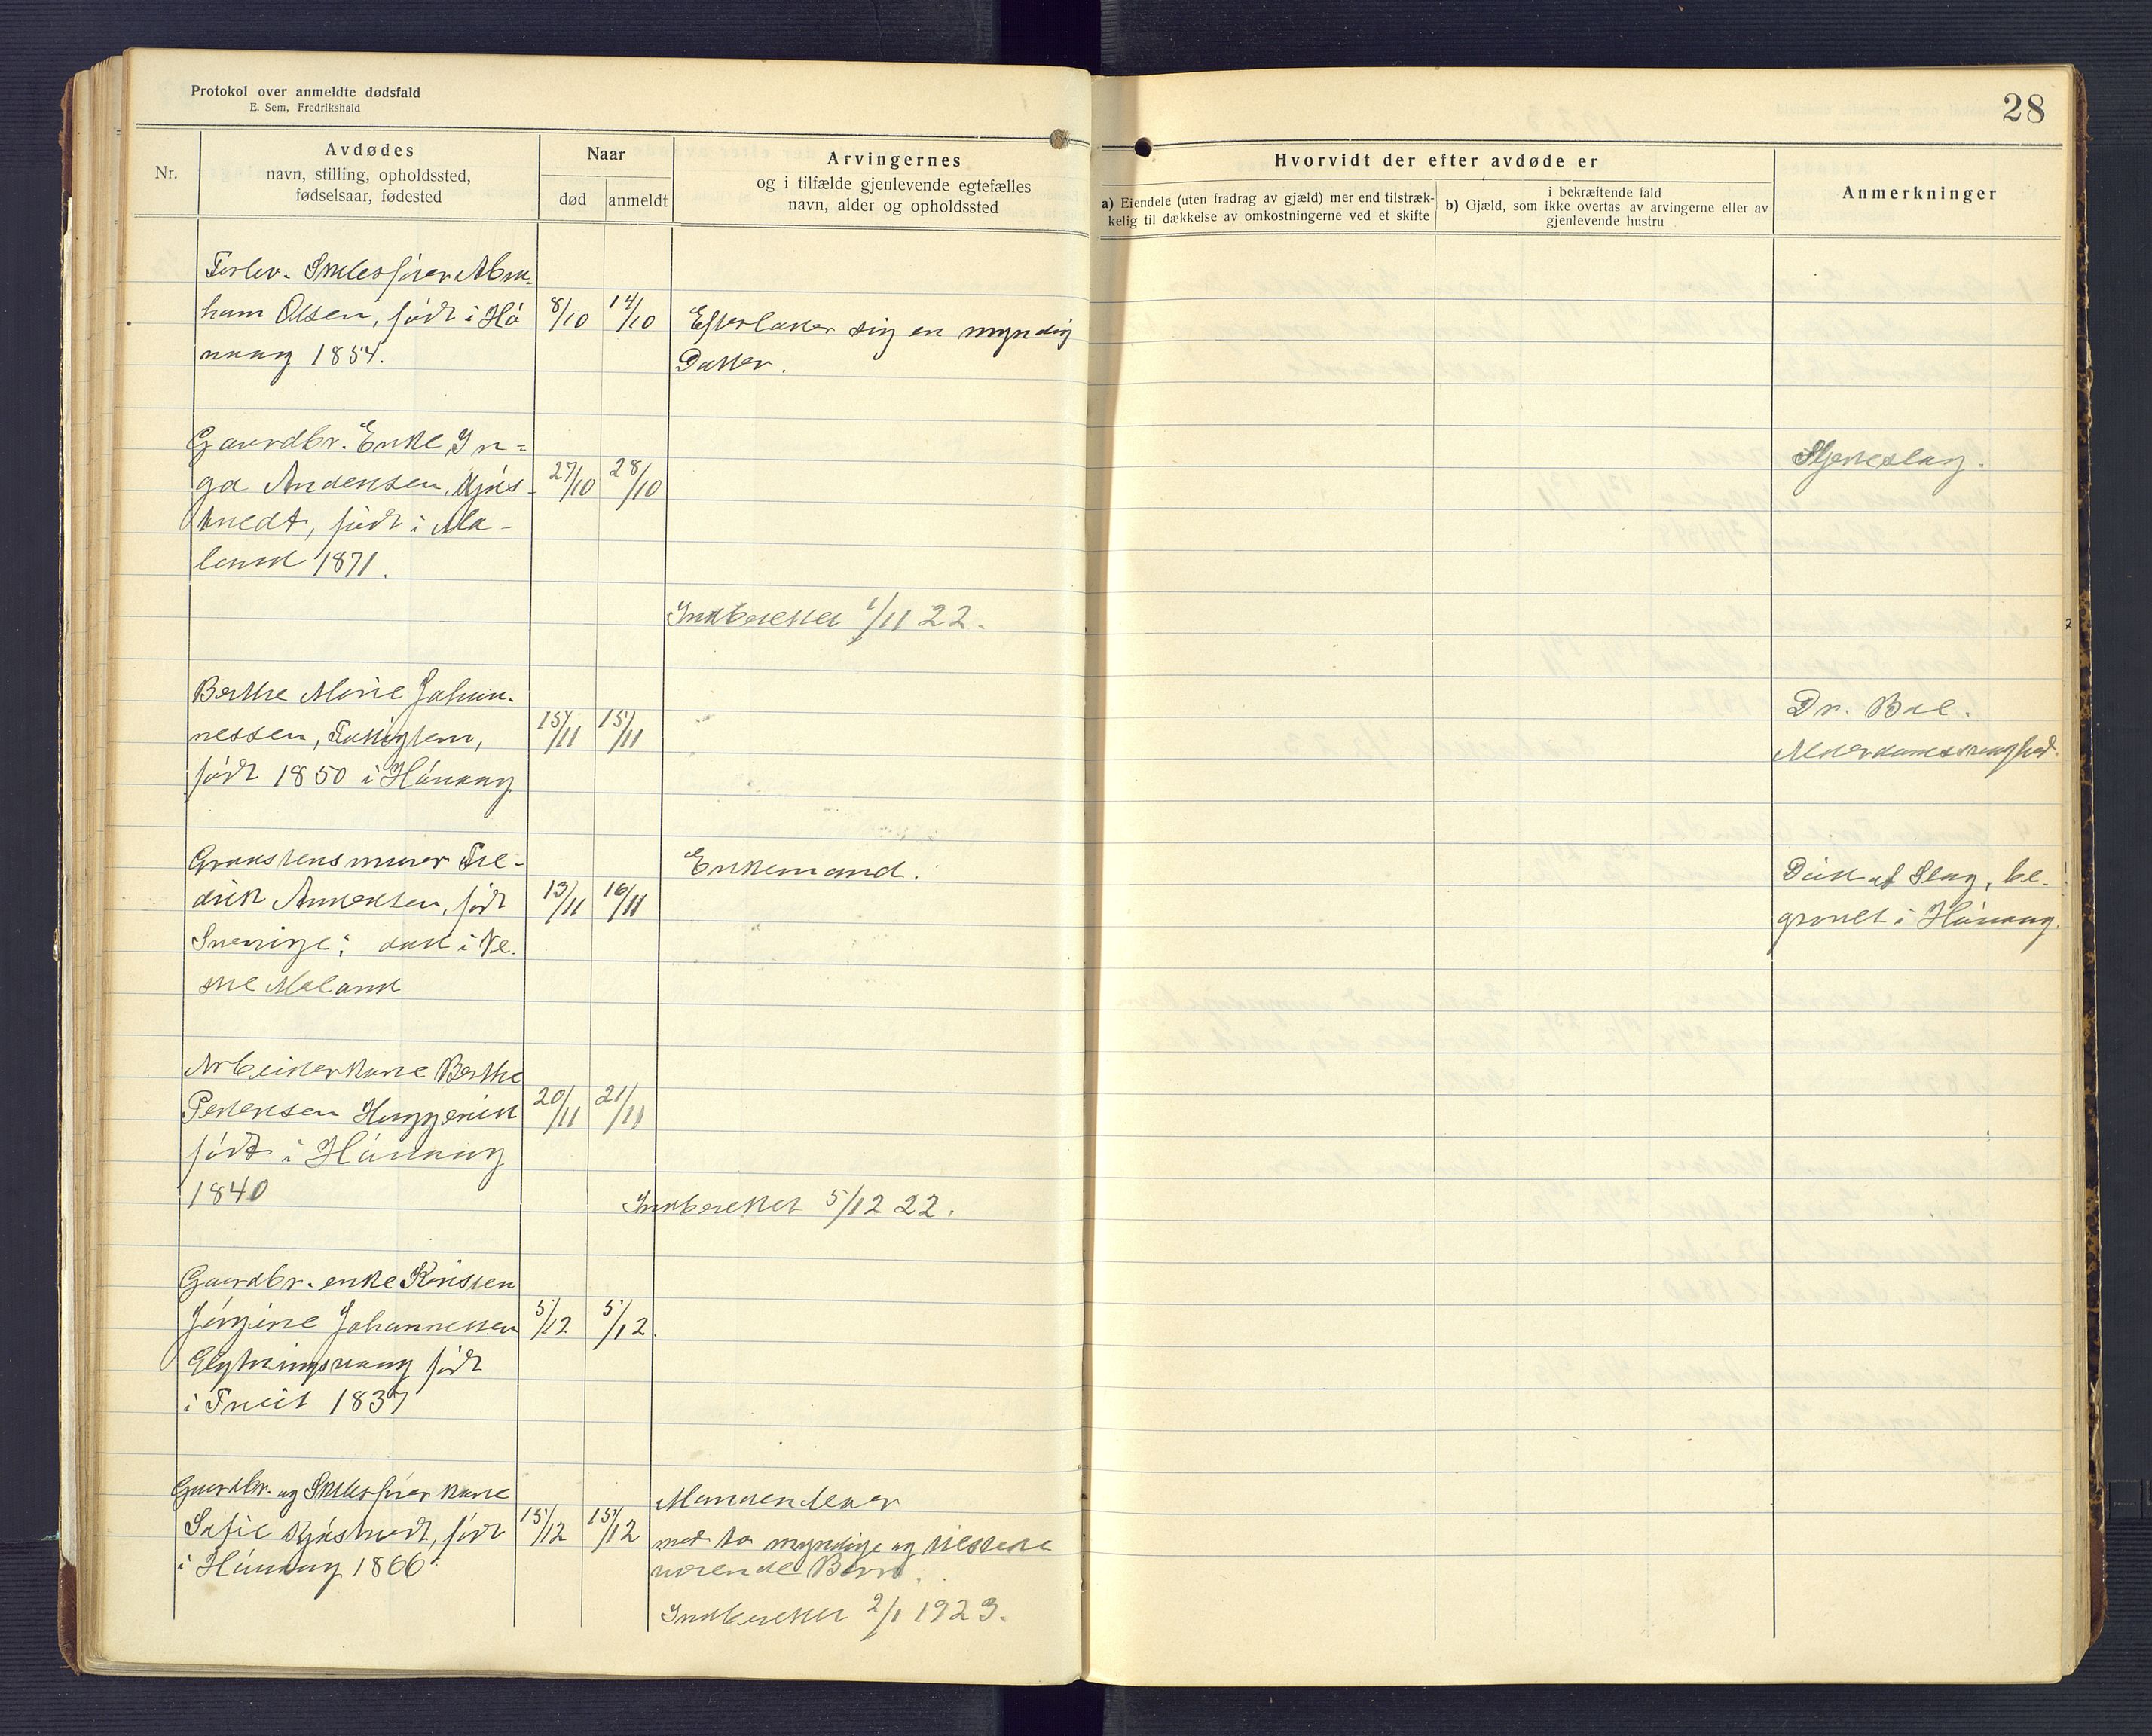 Protokol over anmeldte dødsfald
E. Sem, Fredrikshald
28
Nr.
Avdødes
navn, stilling, opholdssted,
fødselsaar, fødested
Naar
død
anmeldt
Arvingernes
og i tilfælde gjenlevende egtefælles
navn, alder og opholdssted
Hvorvidt der efter avdøde er
a) Eiendele (uten fradrag av gjæld) mer end tilstræk-
kelig til dækkelse av omkostningerne ved et skifte
i bekræftende fald
b) Gjæld, som ikke overtas av arvingerne eller av
gjenlevende hustru
Anmerkninger
Forhv. Skibsfører Abra-
ham Olsen, født i Hö
vaag 1854.
8/10 14/10
Efterlater sig en myndig
Datter.
Gaardbr. Enke In-
ga Andersen,
tvedt, født i Mo-
land 1871.
27/10 28/10
Hjerteslag.
Indberettet 1/11 22.
Berthe Marie Johan-
nessen,
født 1850 i Hövaag
15/11 15/11
Dr. Boe.
Alderdomssvaghed.
Graastensmurer Fre-
drik Andersen, født
Sverige; død i Ve-
stre Moland
13/11 16/11
Enkemand.
Död af Slag, be-
gravet i Hövaag.
Arbeiderkone Berthe
Pedersen
født i Hövaag
1840
20/11 21/11
Indberettet 5/12 22.
Gaardbr. enke Kirsten
Jörgine Johannessen
født
i Tveit 1837
5/12 5/12
Gaardbr. og Skibsfører kone
Sofie født
i Hövaag 1866.
15/12 15/12
Manden lever
med to myndige og tilstede
værende Børn.
Indberettet 2/1 1923.